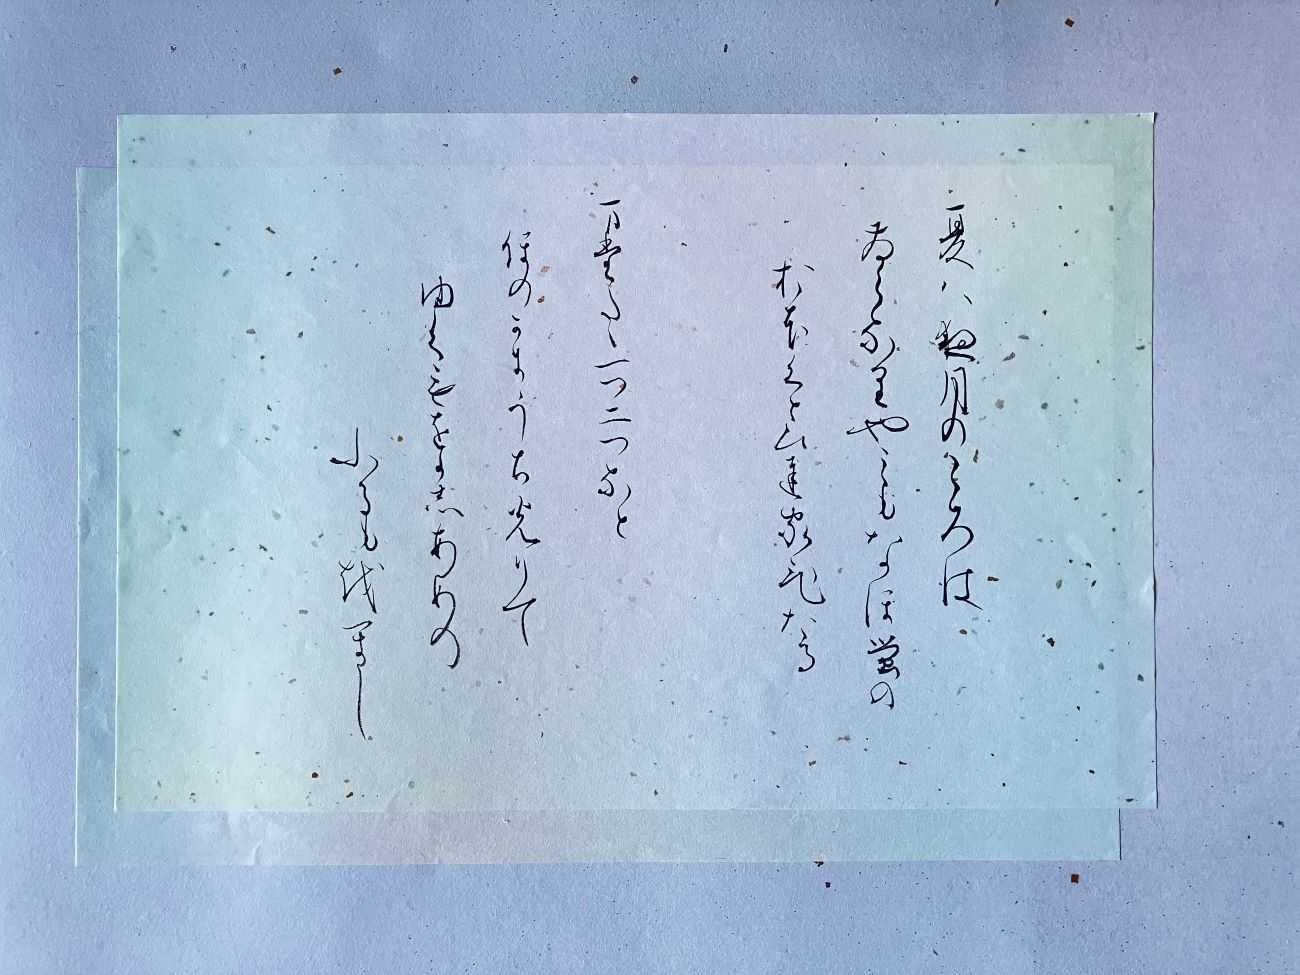 夏ハ夜月のころは
さらなりやみもなほ蛍の
おほくとひちかひたる
またたゝ一つ二つなと
ほのかにうち光りて
ゆくもをかしあめの
ふるもをかし